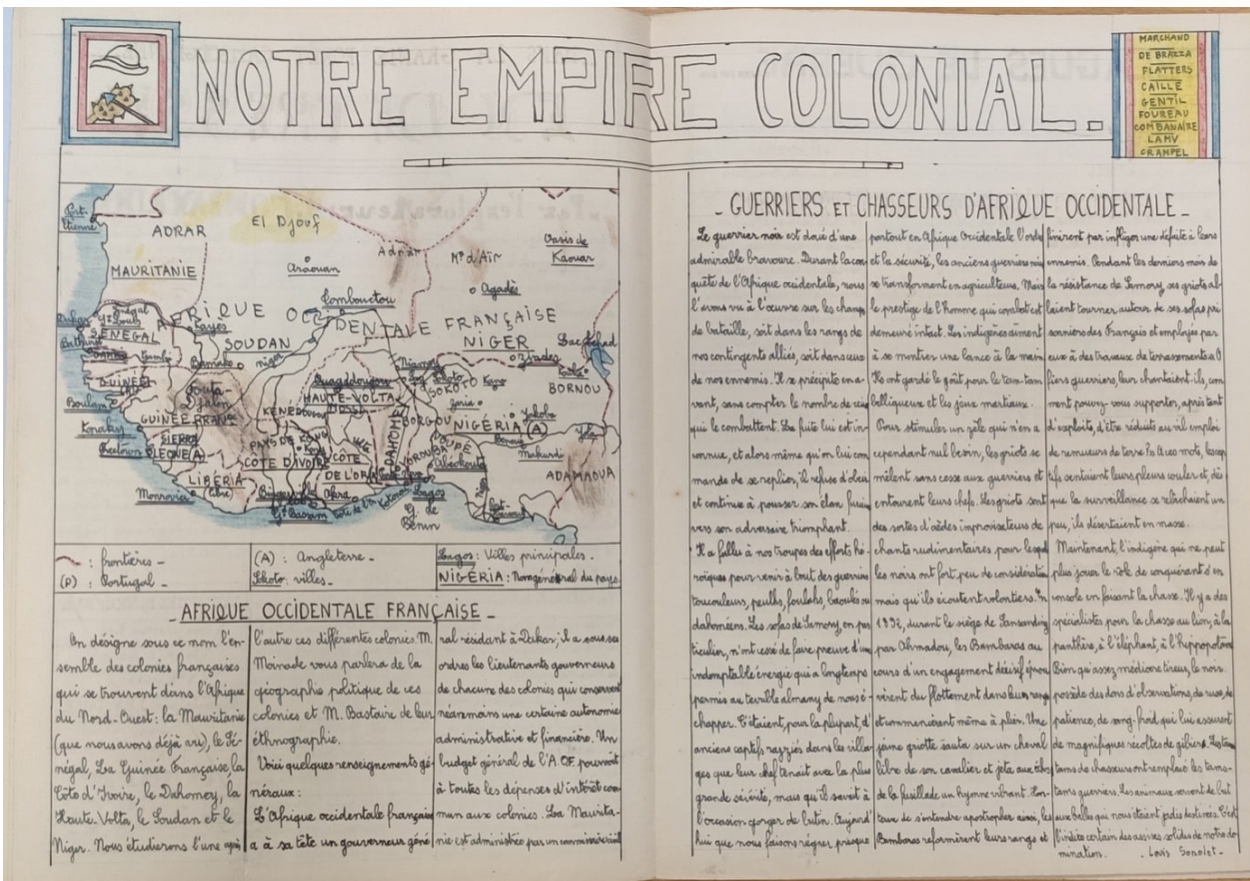 NOTRE EMPIRE COLONIAL.
MARCHAND
DE BRAZZA
FLATTERS
CAILLE
GENTIL
FOUREAU
COMBANAIRE
LAMY
CRAMPEL
Port-Etienne
ADRAR
El Djouf
MAURITANIE
Araouan
Adrar
Mts d'Aïr
Oasis de Kaouar
Agadès
Tombouctou
AFRIQUE OCCIDENTALE FRANÇAISE
SÉNÉGAL
Kayes
SOUDAN
Bamako
niger
NIGER
Lac Tchad
BORNOU
Ouagadougou
HAUTE-VOLTA
MOSSI
SOKOTO
Kano
Zaria
Boulam
Fouta-Djalon
GUINÉE FRANÇ.
KENEDOUGOU
BORGOU
NIGÉRIA (A)
Yakoba
Konakry
Freetown
SIERRA LEONE (A)
PAYS DE KONG
CÔTE D'IVOIRE
CÔTE DE L'OR
DAHOMEY
YOROUBA
NOUPÉ
Abéokouta
Makurdi
Yola
ADAMAOUA
LIBÉRIA
(libre)
Monrovia
Gd Bassam
Akra
Lagos
G. de Bénin
: frontières -
(P) : Portugal -
(A) : Angleterre -
Sokoto : villes -
Lagos : Villes principales -
NIGÉRIA : Nom général du pays
- AFRIQUE OCCIDENTALE FRANÇAISE -
On désigne sous ce nom l'en-
semble des colonies françaises
qui se trouvent dans l'Afrique
du Nord-Ouest : la Mauritanie
(que nous avons déjà vu), le Sé-
négal, La Guinée Française, la
Côte d'Ivoire, le Dahomey, la
Haute-Volta, le Soudan et le
Niger. Nous étudierons l'une après
l'autre ces différentes colonies. M.
Moinade vous parlera de la
géographie politique de ces
colonies et M. Bastaire de leur
éthnographie.
Voici quelques renseignements gé-
néraux :
L'Afrique occidentale française
a à sa tête un gouverneur géné
ral résidant à Dakar ; il a sous ses
ordres les lieutenants gouverneurs
de chacune des colonies qui conservent
néanmoins une certaine autonomie
administrative et financière. Un
budget général de l'A.O.F. pourvoit
à toutes les dépenses d'intérêt com
mun aux colonies. La Maurita-
nie est administrée par un commissaire
- GUERRIERS ET CHASSEURS D'AFRIQUE OCCIDENTALE -
Le guerrier noir est doué d'une
admirable bravoure. Durant la con
quête de l'Afrique occidentale, nous
l'avons vu à l'œuvre sur les champs
de bataille, soit dans les rangs de
nos contingents alliés, soit dans ceux
de nos ennemis. Il se précipite en a-
vant, sans compter le nombre de ceux
qui le combattent. La fuite lui est in-
connue, et alors même qu'on lui com
mande de se replier, il refuse d'obéir
et continue à pousser son élan furieux
vers son adversaire triomphant.
Il a fallu à nos troupes des efforts hé-
roïques pour venir à bout des guerriers
toucouleurs, peulhs, foulahs, baoulés ou
dahoméens. Les sofas de Samory, en par
ticulier, n'ont cessé de faire preuve d'une
indomptable énergie qui a longtemps
permis au terrible almany de nous é-
chapper. C'étaient, pour la plupart, d'
anciens captifs razziés dans les villa-
ges que leur chef tenait avec la plus
grande sévérité, mais qu'il savait à
l'occasion gorger de butin. Aujourd'
hui que nous faisons régner presque
partout en Afrique Occidentale l'ordre
et la sécurité, les anciens guerriers
se transforment en agriculteurs. Mais
le prestige de l'homme qui combat est
demeuré intact. Les indigènes aiment
à se montrer une lance à la main
Ils ont gardé le goût pour le tam-tam
belliqueux et les jeux martiaux.
Pour stimuler un zèle qui n'en a
cependant nul besoin, les griots se
mêlent sans cesse aux guerriers et
entourent leurs chefs. Les griots sont
des sortes d'aèdes improvisateurs de
chants rudimentaires pour lesquels
les noirs ont fort peu de considération
mais qu'ils écoutent volontiers. En
1892, durant le siège de Sansanding
par Ahmadou, les Bambaras au
cours d'un engagement décisif éprou
vèrent du flottement dans leurs rangs
et commencèrent même à plier. Une
jeune griotte sauta sur un cheval
libre de son cavalier et jeta aux échos
de la fusillade un hymne vibrant. Hon-
teux de s'entendre apostropher ainsi, les
Bambaras reformèrent leurs rangs et
finirent par infliger une défaite à leurs
ennemis. Pendant les derniers mois de
la résistance de Samory, ses griots al-
laient tourner autour de ses sofas pri
sonniers des Français et employés par
eux à des travaux de terrassements. O
fiers guerriers, leur chantaient-ils, com
ment pouvez-vous supporter, après tant
d'exploits, d'être réduits au vil emploi
de remueurs de terre ? A ces mots, les cap
tifs sentaient leurs pleurs couler et, dès
que la surveillance se relâchaient un
peu, ils désertaient en masse.
Maintenant, l'indigène qui ne peut
plus jouer le rôle de conquérant s'en
console en faisant la chasse. Il y a des
spécialistes pour la chasse au lion, à la
panthère, à l'éléphant, à l'hippopotame
Bien qu'assez médiocre tireur, le noir
possède des dons d'observations, de ruse, de
patience, de sang-froid qui lui assurent
de magnifiques récoltes de gibiers. Les tam
tams de chasseurs ont remplacé les tams-
tams guerriers. Les animaux servent de but
aux balles qui nous étaient jadis destinées. C'est
l'indice certain des assises solides de notre do
mination. - Louis Sonolet -